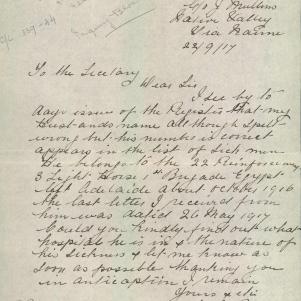 C/o J Mullins
Native Valley
Via Nairne
23/9/17
To the Secetary
Dear Sir
I see by to
days issue of the Register that my
Husbands name although spelt
wrong but his number is correct
appears in the list of sick men
He belongs to the 22 Reinforcements
3 Light Horse 1st Brigade Egypt
left Adelaide about October 1916
the last letter I received from
him was dated 26 May 1917
Could you kindly find out what
hospital he is in & the nature of
his Sickness & let me know as
soon as possible thanking you
in anticaption I remain
Yours etc